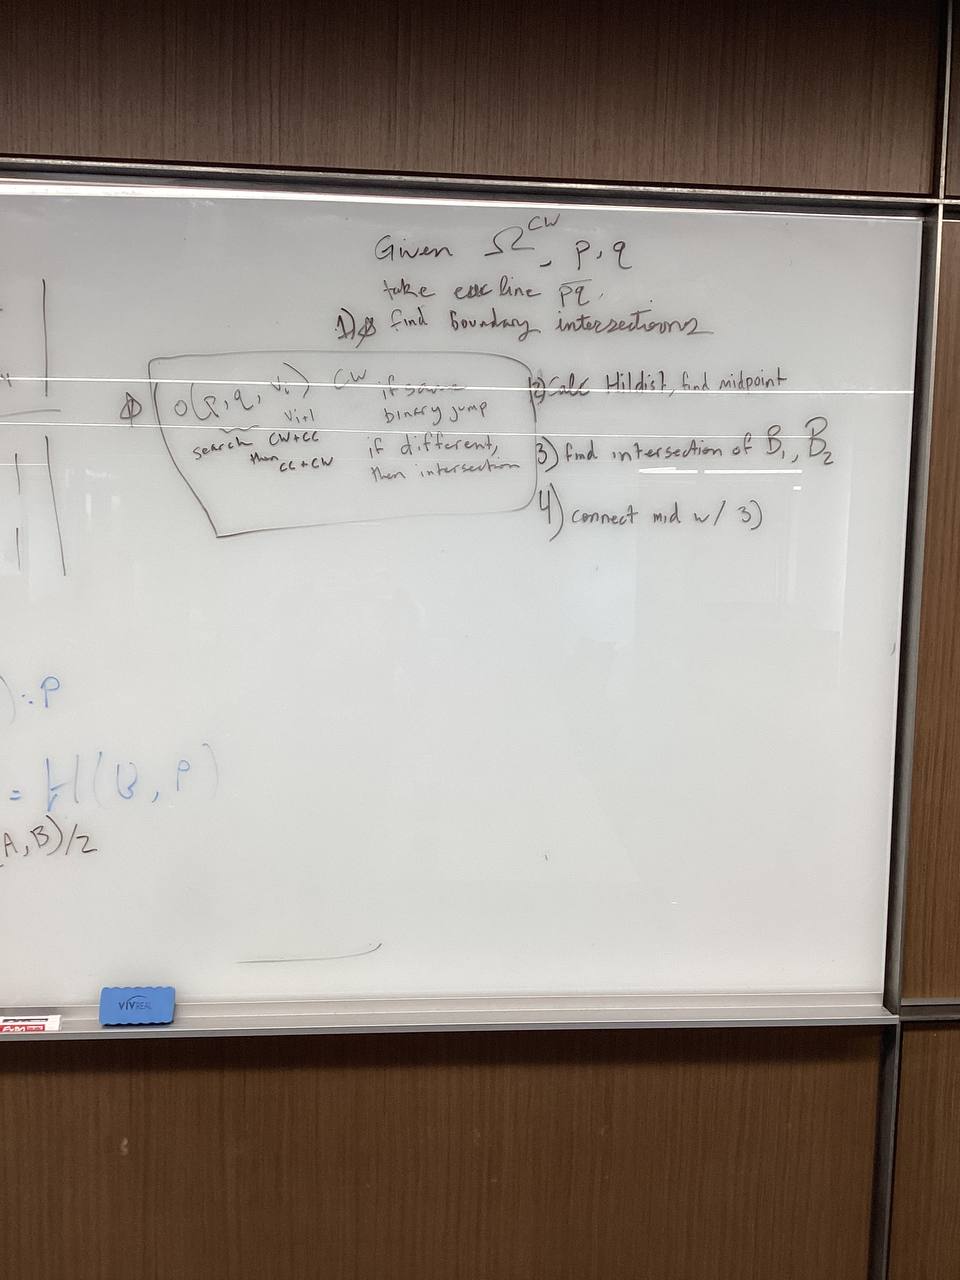 Given Ω^CW, p, q
take euc line p̅q̅.
1) find boundary intersections
o(p, q, vᵢ) CW
vᵢ₊₁
search CW+CC
then CC+CW
if same
binary jump
if different,
then intersection
2) Calc Hildist, find midpoint
3) find intersection of B₁, B₂
4) connect mid w/ 3)
) ∴ P
= H(B, P)
A, B)/2
VIVREAL